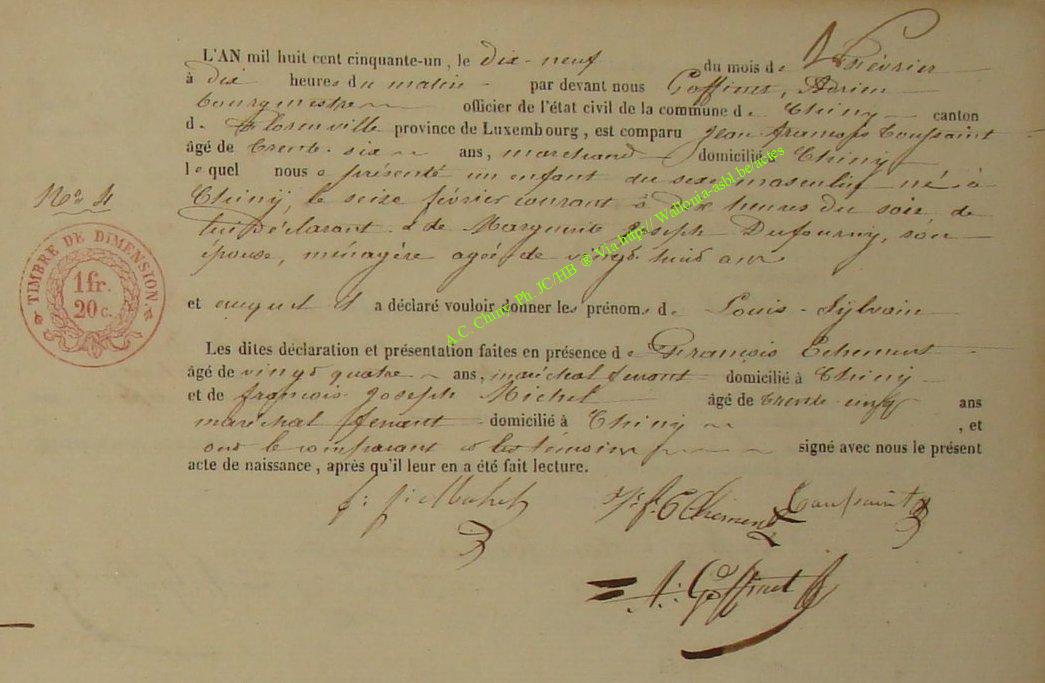 L'AN mil huit cent cinquante-un, le dix-neuf du mois de Février
à dix heures du matin par devant nous Goffinet, Adrien
bourgmestre officier de l'état civil de la commune de Chiny canton
de Florenville province de Luxembourg, est comparu Jean françois Toussaint
âgé de trente-six ans, marchand domicilié à Chiny
lequel nous a présenté un enfant du sexe masculin né à
Nro 4
Chiny, le seize février courant à dix heures du soir, de
lui déclarant & de Marguerite Joseph Dufourny, son
épouse, ménagère agée de vingt huit ans
TIMBRE DE DIMENSION.
1 fr.
20 c.
et auquel il a déclaré vouloir donner les prénoms de Louis-Sylvain
Les dites déclaration et présentation faites en présence de François
âgé de vingt quatre ans, maréchal ferrant domicilié à Chiny
et de françois Joseph Michel âgé de trente ans
maréchal ferrant domicilié à Chiny, et
ont le comparant & les témoins signé avec nous le présent
acte de naissance, après qu'il leur en a été fait lecture.
f: j: Michel Toussaint
A: Goffinet
A.C. Chiny Ph. JC/HB ® Via http:// Wallonia-asbl.be/actes